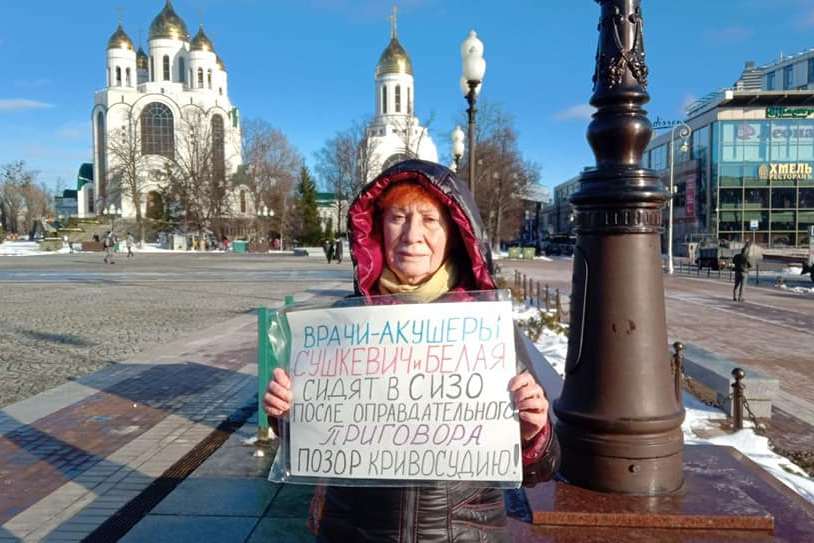 ВРАЧИ-АКУШЕРЫ
СУШКЕВИЧ и БЕЛАЯ
СИДЯТ В СИЗО
ПОСЛЕ ОПРАВДАТЕЛЬНОГО
ПРИГОВОРА
ПОЗОР КРИВОСУДИЮ!
ХМЕЛЬ